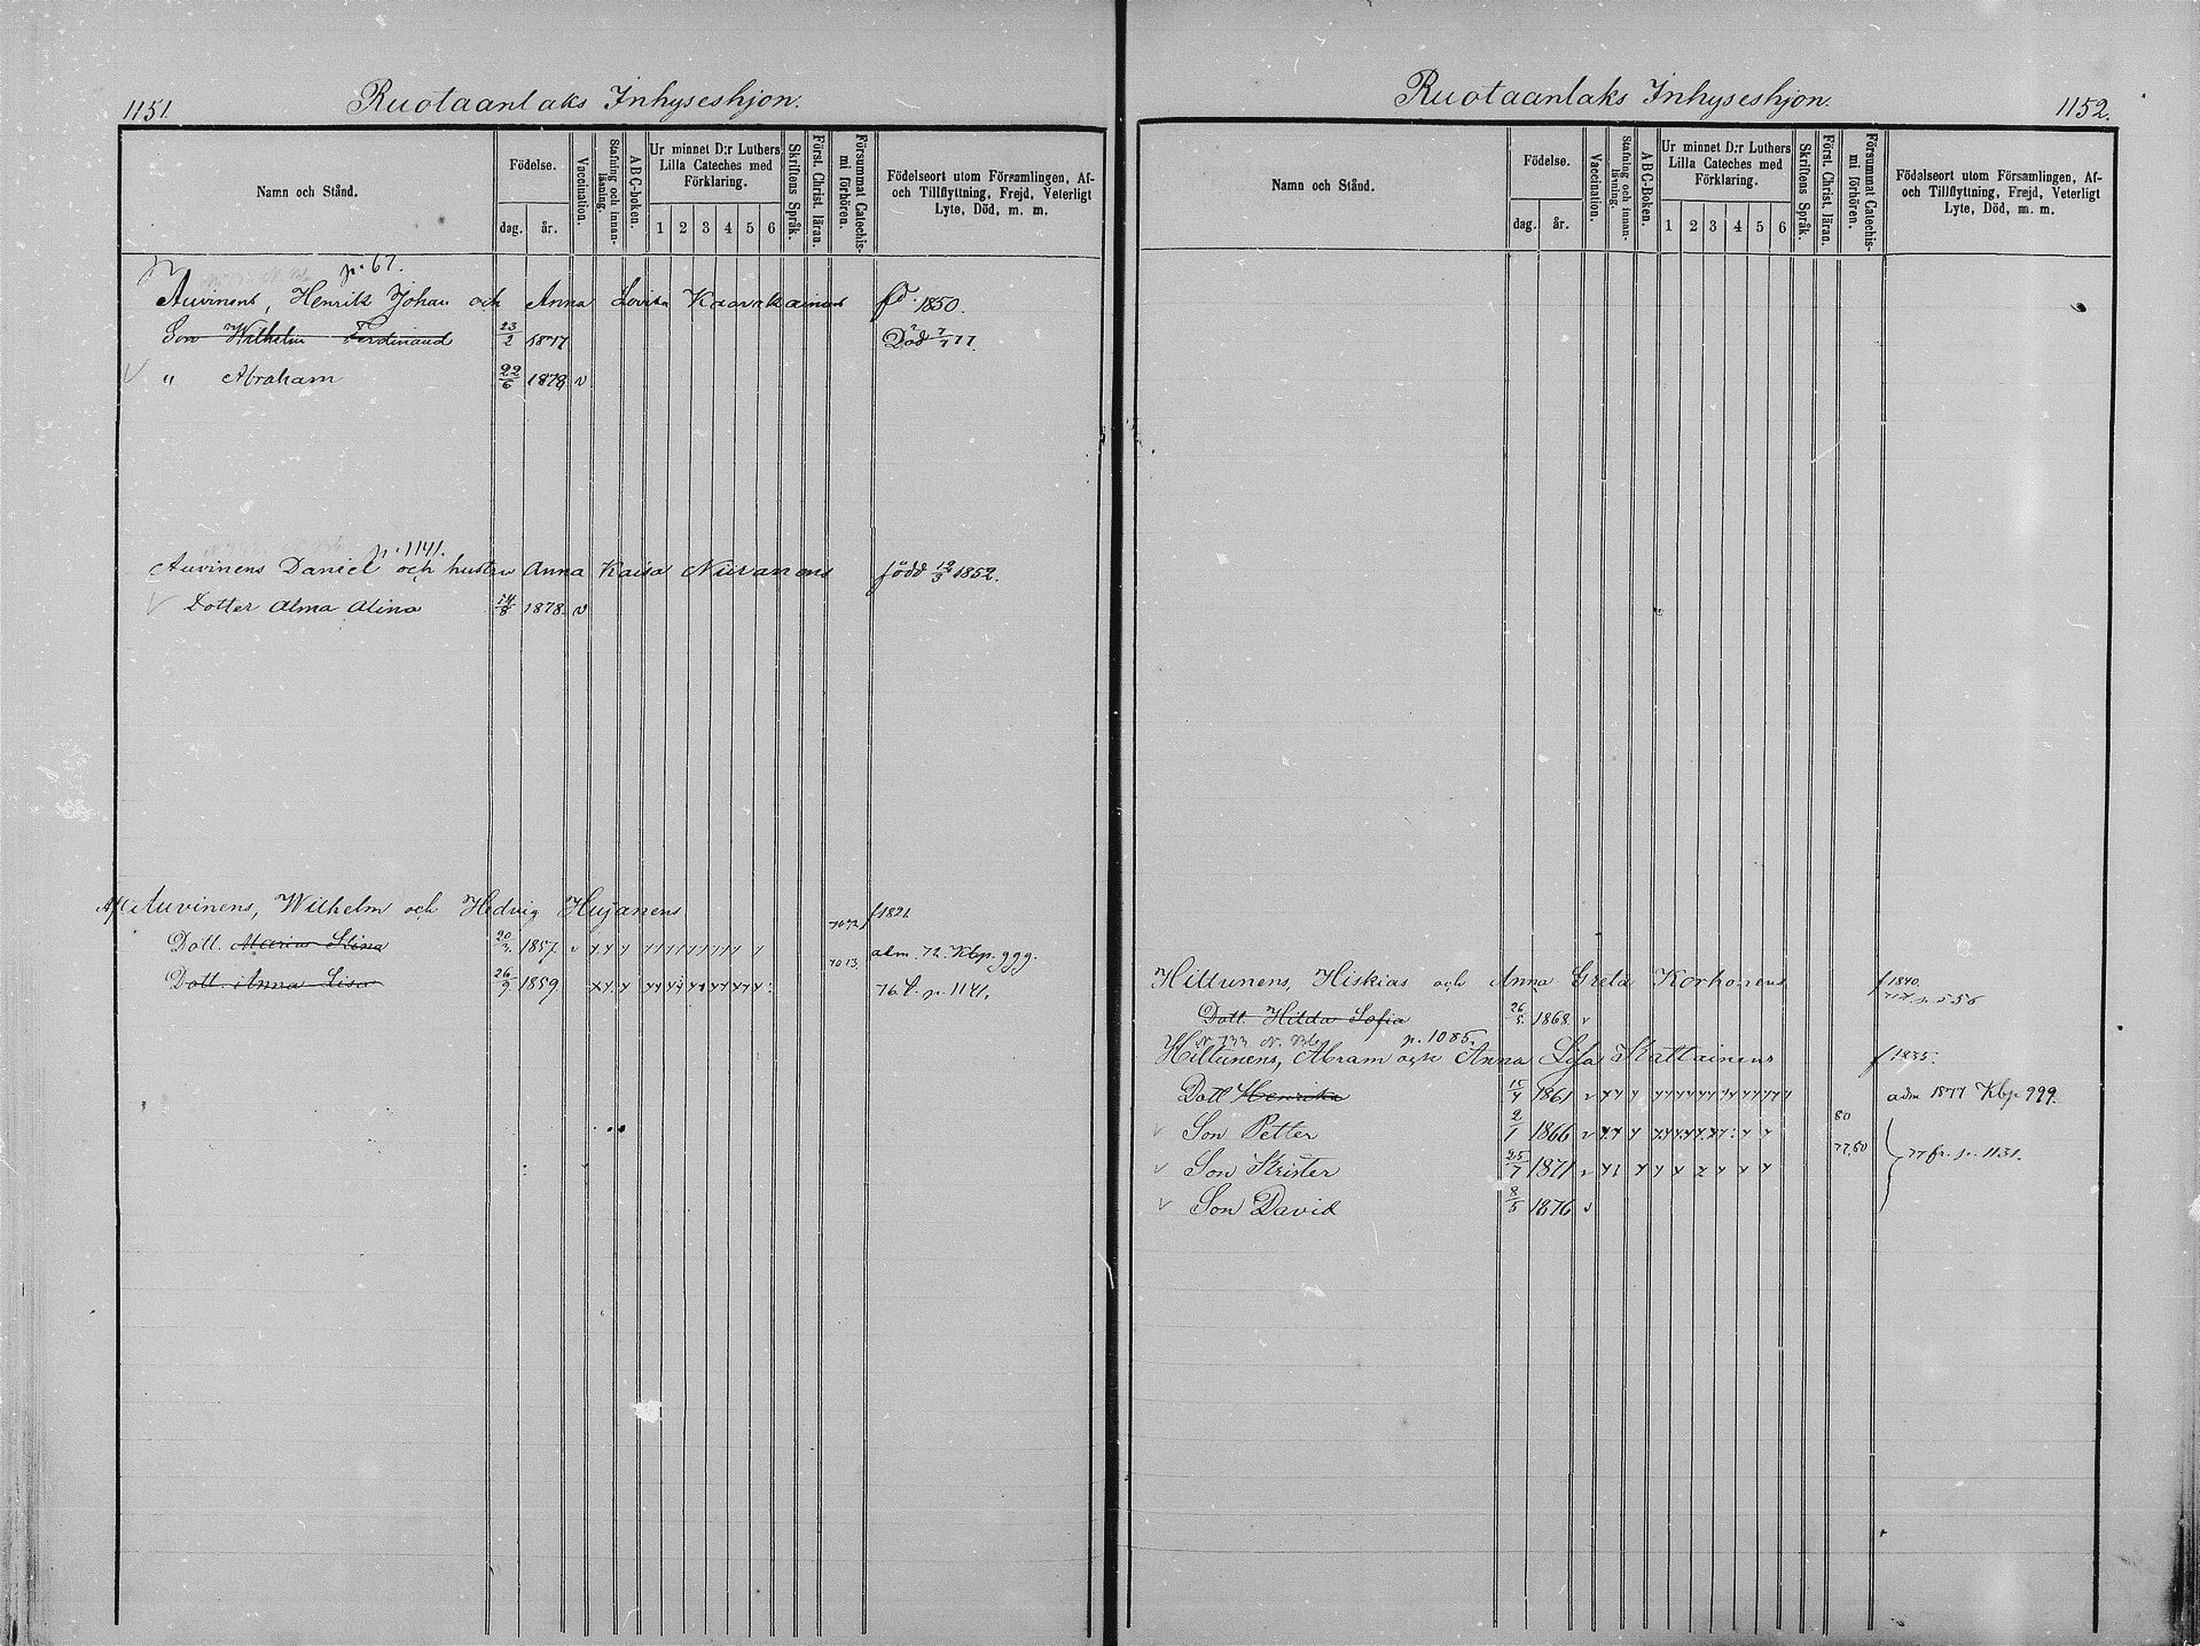 1151.
Ruotaanlaks Inhyseshjon.
Namn och Stånd.
Födelse.
dag. år.
Vaccination.
Stafning och innanläsning.
ABC-boken.
Ur minnet D:r Luthers Lilla Cateches med Förklaring.
1 2 3 4 5 6
Skriftens Språk.
Först. Christ. läran.
Försummat Catechismi förhören.
Födelseort utom Församlingen, Af- och Tillflyttning, Frejd, Veterligt Lyte, Död, m. m.
p. 67.
Auvinens, Henrik Johan och Anna Lovisa fd. 1850.
Son Wilhelm Ferdinand 23/2 1877 Död
" Abraham 22/6 1878 v
p. 1141.
Auvinens Daniel och hustru Anna Kaisa Niiranens född 12/3 1852.
Dotter Alma Alina 14/8 1878 v
Auvinens, Wilhelm och Hedvig Hujanens f 1821.
Dott. Maria Stina 20/3 1857. v adm. 72. Kbp. 999.
Dott. Anna Lisa 26/9 1859 76 t. p. 1141.
1152.
Ruotaanlaks Inhyseshjon.
Namn och Stånd.
Födelse.
dag. år.
Vaccination.
Stafning och innanläsning.
ABC-boken.
Ur minnet D:r Luthers Lilla Cateches med Förklaring.
1 2 3 4 5 6
Skriftens Språk.
Först. Christ. läran.
Försummat Catechismi förhören.
Födelseort utom Församlingen, Af- och Tillflyttning, Frejd, Veterligt Lyte, Död, m. m.
Hiltunens, Hiskias och Anna Greta Korhonens f 1840.
Dott. Hilda Sofia 26/5 1868. v
p. 1085.
Hiltunens, Abram och Anna Lisa f 1835.
Dott Henrika 15/4 1861 v adm 1877 Kbp 999.
Son Petter 2/1 1866 v 80
Son Krister 25/7 1871 v 77,80 77 fr. p. 1131.
Son David 8/5 1876 v